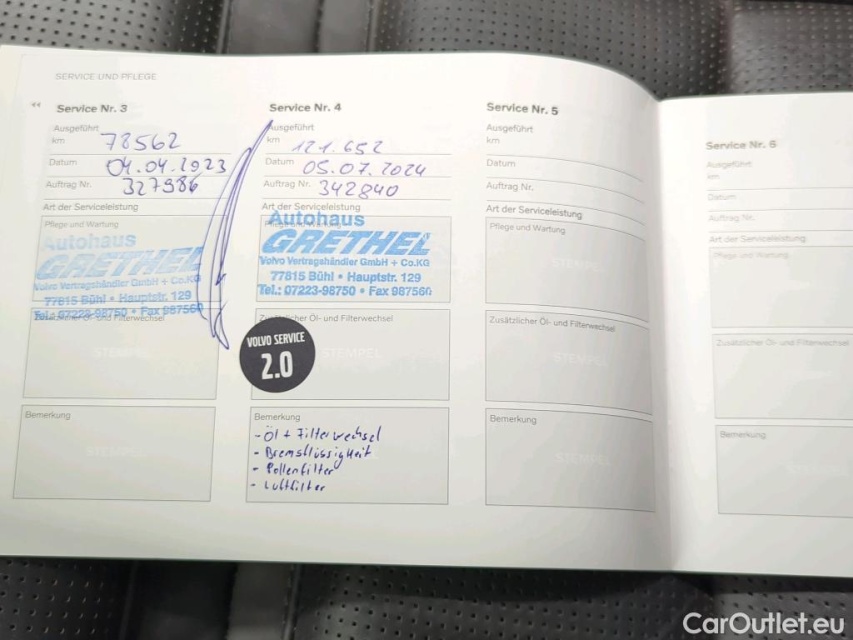 SERVICE UND PFLEGE
Service Nr. 3
Ausgeführt
km 78562
Datum 04.04.2023
Auftrag Nr. 327986
Art der Serviceleistung
Pflege und Wartung
Autohaus
GRETHEL
Volvo Vertragshändler GmbH + Co.KG
77815 Bühl • Hauptstr. 129
Tel.: 07223-98750 • Fax 987560
Zusätzlicher Öl- und Filterwechsel
STEMPEL
Bemerkung
STEMPEL
Service Nr. 4
Ausgeführt
km 121.652
Datum 05.07.2024
Auftrag Nr. 342840
Art der Serviceleistung
Pflege und Wartung
Autohaus
GRETHEL
Volvo Vertragshändler GmbH + Co.KG
77815 Bühl • Hauptstr. 129
Tel.: 07223-98750 • Fax 987560
Zusätzlicher Öl- und Filterwechsel
STEMPEL
VOLVO SERVICE
2.0
Bemerkung
- Öl + Filterwechsel
- Bremsflüssigkeit
- Pollenfilter
- Luftfilter
Service Nr. 5
Ausgeführt
km
Datum
Auftrag Nr.
Art der Serviceleistung
Pflege und Wartung
STEMPEL
Zusätzlicher Öl- und Filterwechsel
STEMPEL
Bemerkung
STEMPEL
Service Nr. 6
Ausgeführt
km
Datum
Auftrag Nr.
Art der Serviceleistung
Pflege und Wartung
Zusätzlicher Öl- und Filterwechsel
Bemerkung
CarOutlet.eu